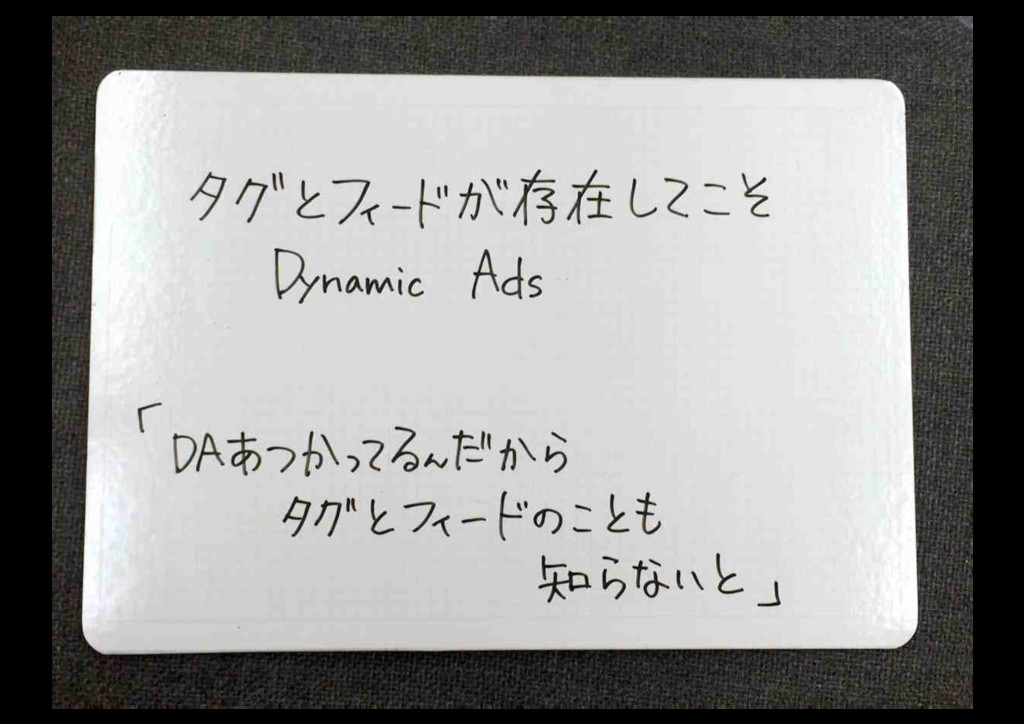 タグとフィードが存在してこそ
Dynamic Ads
「DAあつかってるんだから
タグとフィードのことも
知らないと」